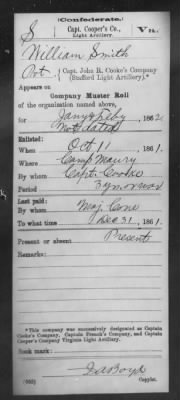 (Confederate.)
S Capt. Cooper's Co., Va.
Light Artillery.
William Smith
Pvt, Capt. John R. Cooke's Company
(Stafford Light Artillery).*
Appears on
Company Muster Roll
of the organization named above,
for Jany & Feby, 1862.
Not dated
Enlisted:
When Oct 11, 1861.
Where Camp Maury
By whom Capt. Cooke
Period
Last paid:
By whom Maj. Cone
To what time Dec 31, 1861.
Present or absent Present
Remarks:
*This company was successively designated as Captain
Cooke's Company, Captain French's Company, and Captain
Cooper's Company Virginia Light Artillery.
Book mark:
Boyd
Copyist.